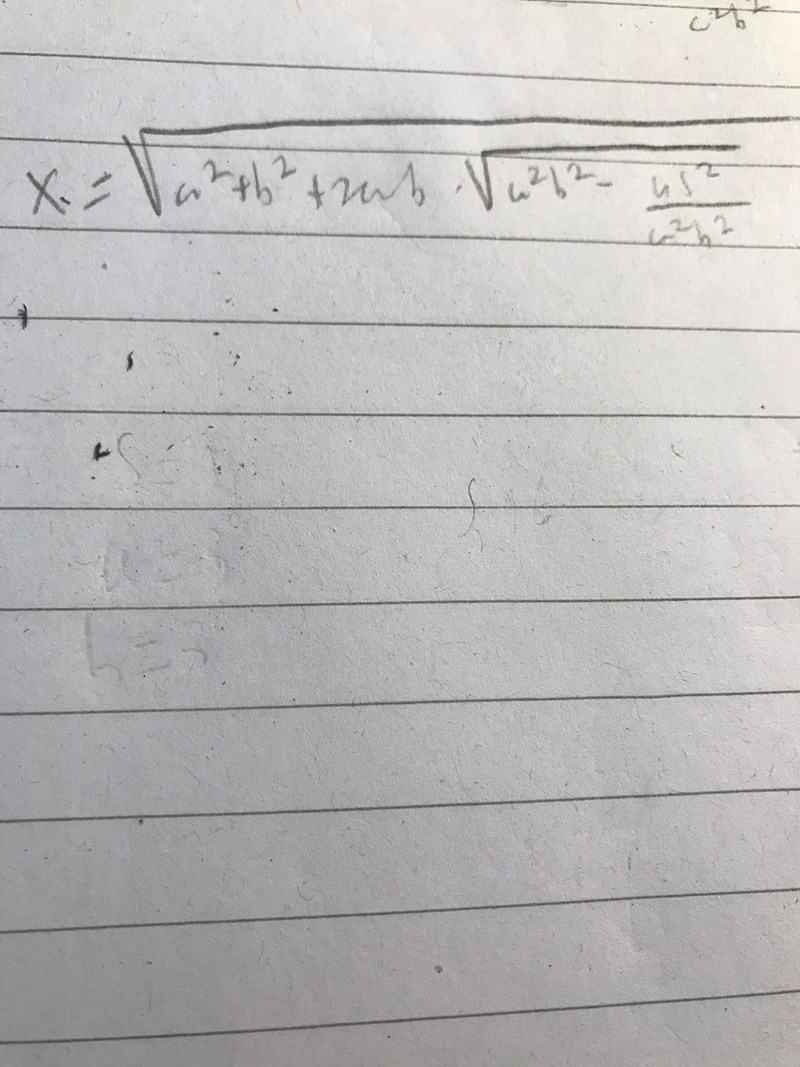 a²b²
x = √(a²+b²+2ab·√(a²b² - 4S²/a²b²))
S =
a =
b =